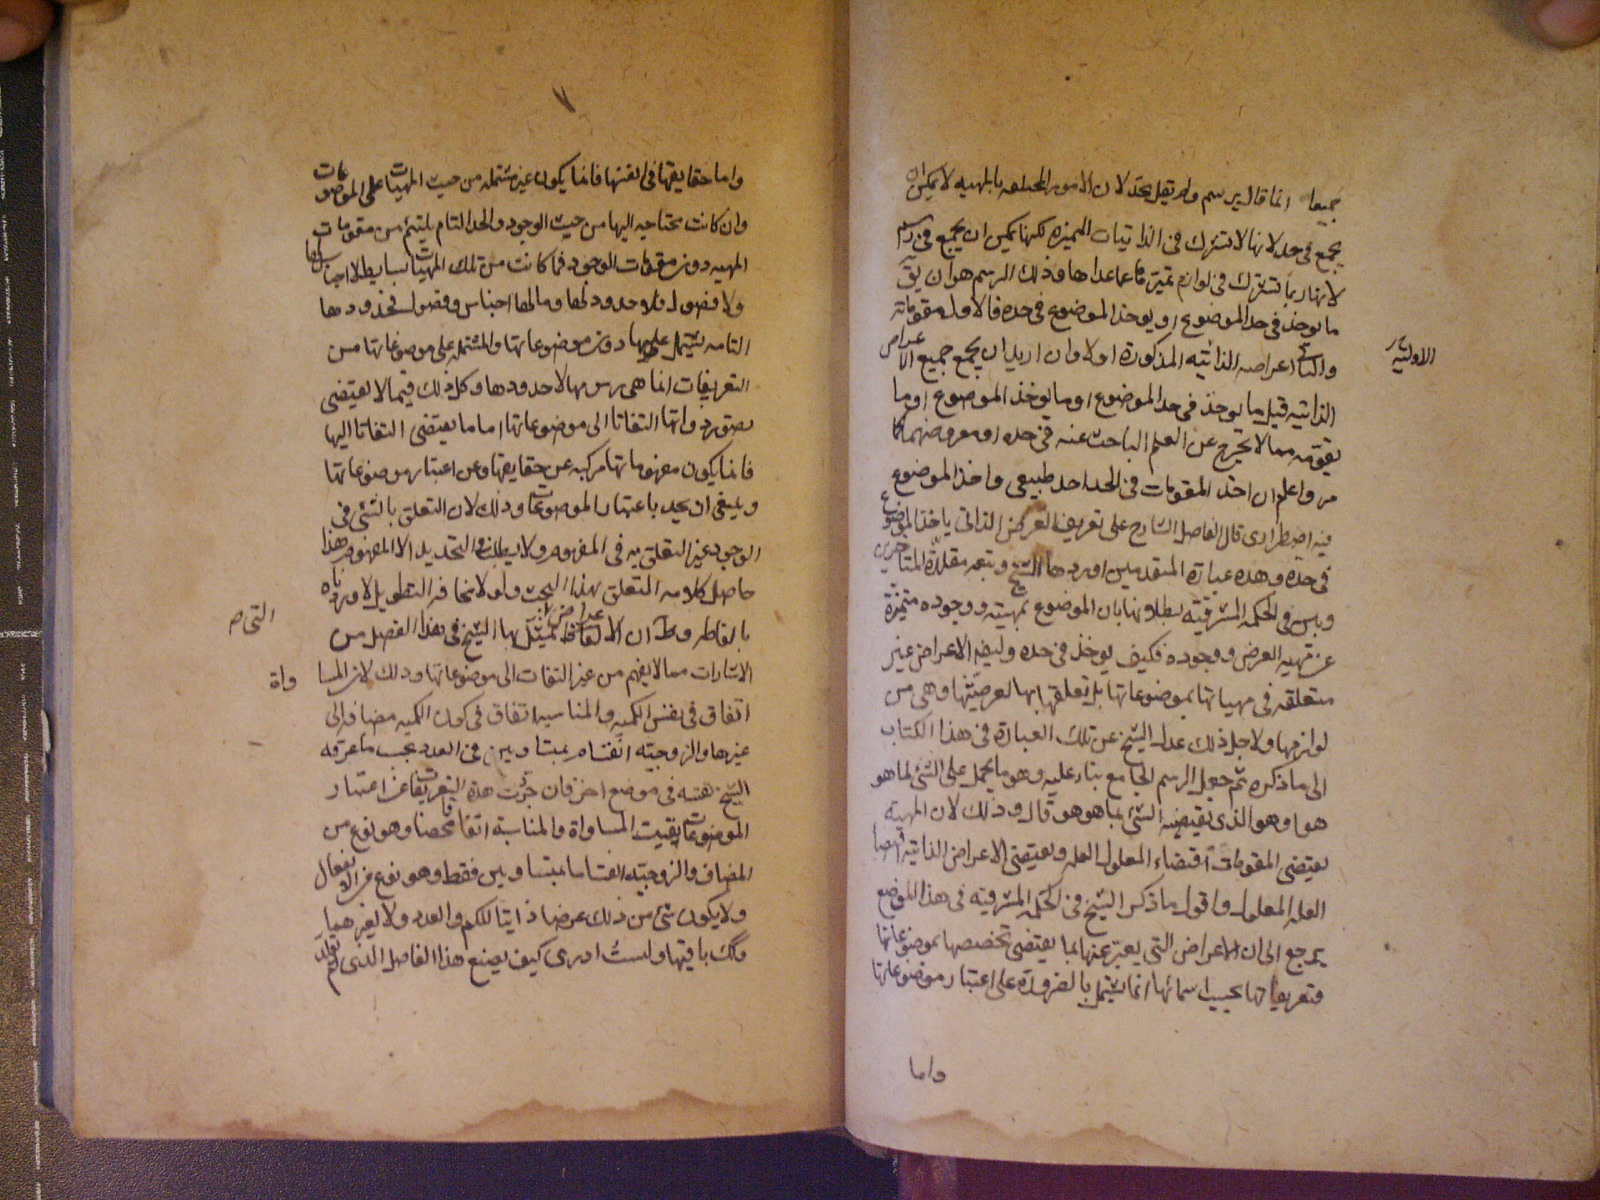 جميعا انما قال يرسم ولم يقل يحد لان الامور المختلفه بالمهيه لا يمكن ان
يجمع في حد لانها لا تشترك في الذاتيات المميزه لكنها يمكن ان يجمع في رسم
لانها ربما تشترك في لوازم تميزها عما عداها وذلك الرسم هو ان يق
ما يوخذ في حد الموضوع او يوخذ الموضوع في حده فالاول مقوماته
والثاني اعراضه الذاتيه المذكورة اولا وان اريد ان يجمع جميع الاعراض
الاوليه
الذاتيه قيل ما يوخذ في حد الموضوع او ما يوخذ الموضوع او ما
يقومه مما لا يخرج عن العلم الباحث عنه في حده او معروضهما كما
مر واعلم ان اخذ المقومات في الحد احد طبيعي واخذ الموضوع
فيه اضطرارى قال الفاضل الشارح على تعريف العرض الذاتى ياخذ الموضوع
في حده وهذه عبارة المتقدمين اوردها الشيخ وتبعه مقلدة المتاخرين
وبين في الحكمة المشرقية بطلانها بان الموضوع بمهيته ووجوده متميزة
عن مهيه العرض ووجوده فكيف يوخذ في حده وليضه الاعراض غير
متعلقه في مهياتها بموضوعاتها بل تعلقها بها لعرضيتها وهى من
لوازمها ولاجل ذلك عدل الشيخ عن تلك العبارة في هذا الكتاب
الى ما ذكره ثم جعل الرسم الجامع بناء عليه وهو ما يحمل على الشئ لما هو
هو او هو الذى يقتضيه الشئ بما هو هو قال وذلك لان المهية
يقتضى المقومات اقتضاء المعلول العله ويقتضى الاعراض الذاتية اقتضا
العله المعلول واقول ما ذكره الشيخ في الحكمة المشرقيه في هذا الموضع
يرجع الى ان الاعراض التى يعبر عنها بما يقتضى تخصصها بموضوعاتها
وتعريفاتها بحسب اسمائها انما يشتمل بالضرورة على اعتبار موضوعاتها
واما
واما حقايقها في انفسها فانما يكون غير مشتمله من حيث المهيات على الموضوعات
وان كانت محتاجه اليها من حيث الوجود والحد التام يلتئم من مقومات
المهيه دون مقومات الوجود فما كانت من تلك المهيات بسايط لا اجناس لها
ولا فصول فلا حدود لها وما لها اجناس وفصول فحدودها
التامه يشتمل عليها دون موضوعاتها والمشتمله على موضوعاتها من
التعريفات انما هى رسومها لا حدودها وكل ذلك فيما لا يقتضى
تصور ذواتها التفاتا الى موضوعاتها اما ما يقتضى التفاتا اليها
فانما يكون مفهوماتها مركبه عن حقايقها وعن اعتبار موضوعاتها
وينبغى ان يحد باعتبار الموضوعات وذلك لان التعلق بالشئ في
الوجود غير التعلق به في المفهوم ولا يطلب في التحديد الا المفهوم وهذا
حاصل كلامه المتعلق بهذا البحث ولولا مخافة التطويل لاوردناه
بالفاظه وظ ان الاعراض التى تمثل بها الشيخ في هذا الفصل من
الاشارات مما لا يفهم من غير التفات الى موضوعاتها وذلك لان المسا
واة
اتفاق في نفس الكميه والمناسبه اتفاق في كون الكميه مضافه الى
غيرها والزوجيه انقسام بمتساويين في العدد بحسب ما عرفه
الشيخ نفسه في موضع اخر فان جرت هذه التعريفات عن اعتبار
الموضوعات بقيت المساواة والمناسبة اتفاقا محضا وهو نوع من
المضاف والزوجيه انقساما بمتساويين فقط وهو نوع من الانفعال
ولا يكون شئ من ذلك عرضا ذاتيا للكم والعدد ولا لغيرهما
وكك باقيها ولست ادرى كيف يصنع هذا الفاضل الذى